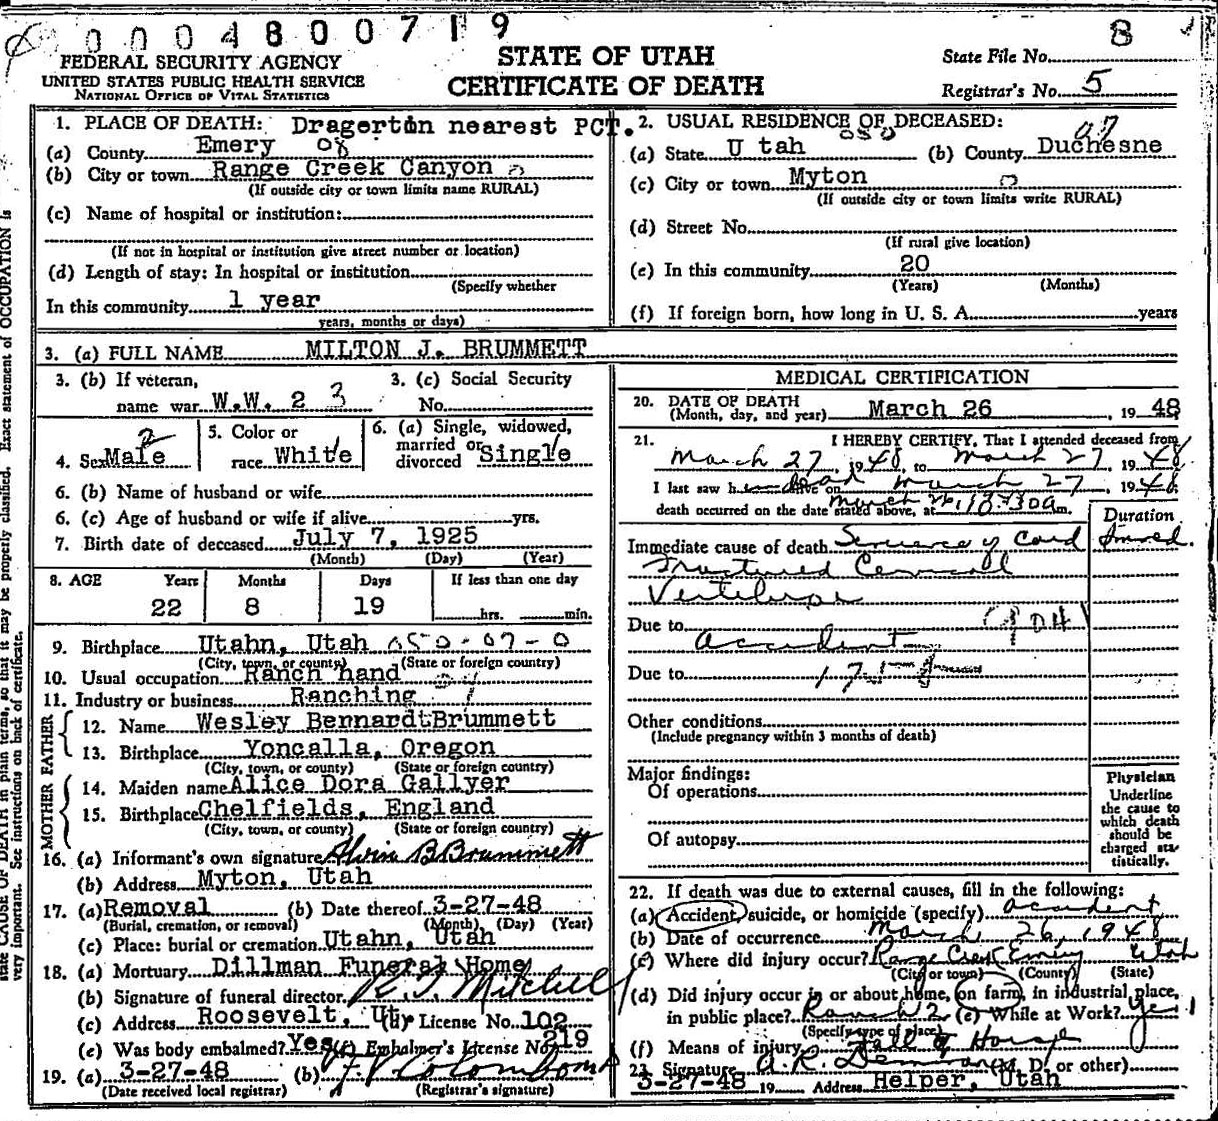 0004800719
8
FEDERAL SECURITY AGENCY
UNITED STATES PUBLIC HEALTH SERVICE
NATIONAL OFFICE OF VITAL STATISTICS
STATE OF UTAH
CERTIFICATE OF DEATH
State File No.
Registrar's No. 5
1. PLACE OF DEATH: Dragerton nearest PCT.
(a) County Emery 08
(b) City or town Range Creek Canyon 0
(If outside city or town limits name RURAL)
(c) Name of hospital or institution:
(If not in hospital or institution give street number or location)
(d) Length of stay: In hospital or institution
(Specify whether
In this community 1 year
years, months or days)
2. USUAL RESIDENCE OF DECEASED:
050 07
(a) State U tah (b) County Duchesne
(c) City or town Myton 0
(If outside city or town limits write RURAL)
(d) Street No.
(If rural give location)
(e) In this community 20
(Years) (Months)
(f) If foreign born, how long in U. S. A. years
3. (a) FULL NAME MILTON J. BRUMMETT
3. (b) If veteran,
name war W.W. 2 3
3. (c) Social Security
No.
4. Sex Male 2
5. Color or
race White 1
6. (a) Single, widowed,
married or
divorced Single 1
6. (b) Name of husband or wife
6. (c) Age of husband or wife if alive yrs.
7. Birth date of deceased July 7, 1925
(Month) (Day) (Year)
8. AGE Years Months Days If less than one day
22 8 19 hrs. min.
9. Birthplace Utahn, Utah 050-07-0
(City, town, or county) (State or foreign country)
10. Usual occupation Ranch hand
11. Industry or business Ranching
FATHER
12. Name Wesley Bennardt Brummett
13. Birthplace Yoncalla, Oregon
(City, town, or county) (State or foreign country)
MOTHER
14. Maiden name Alice Dora Gallyer
15. Birthplace Chelfields, England
(City, town, or county) (State or foreign country)
16. (a) Informant's own signature Alvin B Brummett
(b) Address Myton, Utah
17. (a) Removal (b) Date thereof 3-27-48
(Burial, cremation, or removal) (Month) (Day) (Year)
(c) Place: burial or cremation Utahn, Utah
18. (a) Mortuary Dillman Funeral Home
(b) Signature of funeral director Mitchell
(c) Address Roosevelt, Ut. (d) License No. 102
(e) Was body embalmed? Yes (f) Embalmer's License No. 219
19. (a) 3-27-48 (b)
(Date received local registrar) (Registrar's signature)
MEDICAL CERTIFICATION
20. DATE OF DEATH
(Month, day, and year) March 26, 1948
21. I HEREBY CERTIFY, That I attended deceased from
March 27, 1948, to March 27, 1948
I last saw h dead alive on March 27, 1948
death occurred on the date stated above, at March 26, m.
Duration
Immediate cause of death Severence of Cord Immed.
Fractured Cervical
Vertebrae
Due to Accident
Due to
Other conditions
(Include pregnancy within 3 months of death)
Major findings:
Of operations
Of autopsy
Physician
Underline
the cause to
which death
should be
charged sta-
tistically.
22. If death was due to external causes, fill in the following:
(a) Accident, suicide, or homicide (specify) accident
(b) Date of occurrence March 26, 1948
(c) Where did injury occur? Range Creek Emery Utah
(City or town) (County) (State)
(d) Did injury occur in or about home, on farm, in industrial place,
in public place? Ranch 2 (e) While at Work? yes 1
(Specify type of place)
(f) Means of injury Fall of Horse
23. Signature (M. D. or other)
3-27-48 19 Address Helper, Utah
state CAUSE OF DEATH in plain terms, so that it may be properly classified. Exact statement of OCCUPATION is
very important. See instructions on back of certificate.